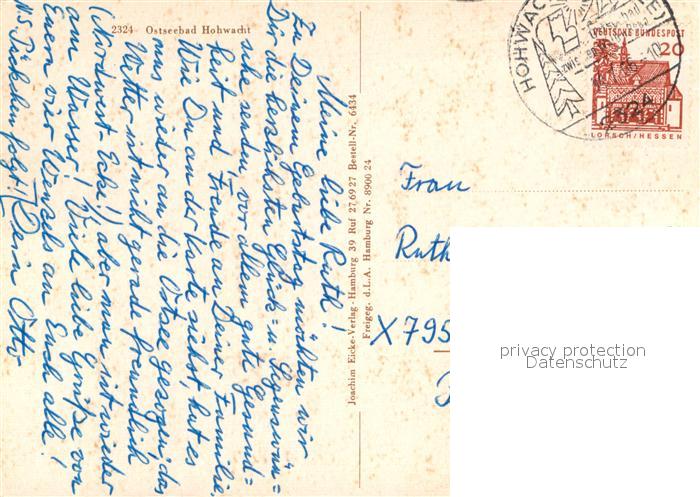 2324 Ostseebad Hohwacht
Meine liebe Ruth!
Zu Deinem Geburtstag möchten wir
Dir die herzlichsten Glück= u. Segenswün=
sche senden, vor allem gute Gesund=
heit und Freude an Deiner Familie.
Wie Du an der Karte siehst, hat es
uns wieder an die Ostsee gezogen, das
Wetter ist nicht gerade freundlich
(Nordwest-Ecke!) aber man ist wieder
am Wasser! Viele liebe Grüße von
Euern vier Wenzels an Euch alle!
NS. Päckchen folgt! Dein Otto
Joachim Eicke-Verlag - Hamburg 39 Ruf 27 69 27 Bestell-Nr. 6434
Freigeg. d. L.A. Hamburg Nr. 8900 24
DEUTSCHE BUNDESPOST
20
LORSCH/HESSEN
Frau
Ruth
X 795
privacy protection
Datenschutz